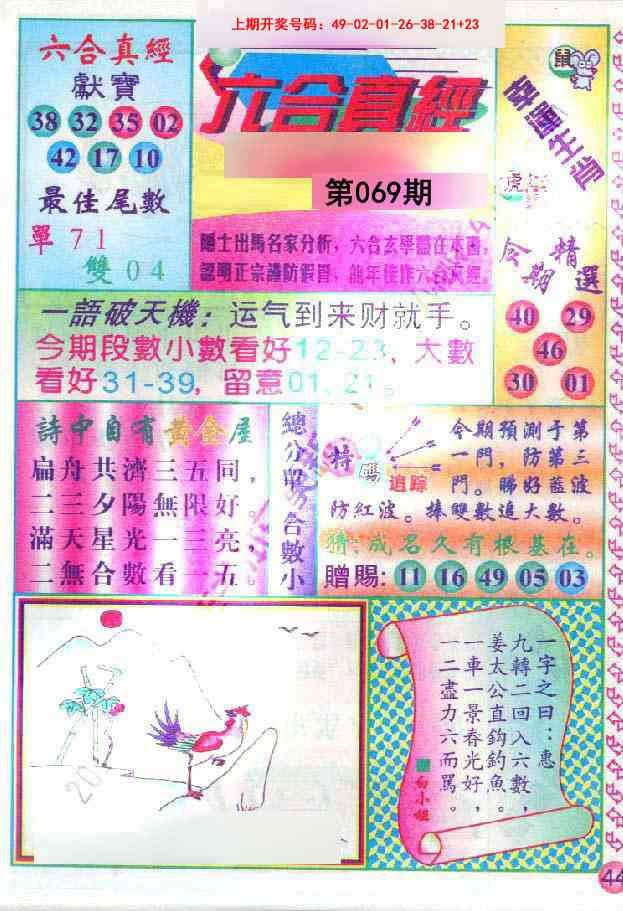 上期开奖号码：49-02-01-26-38-21+23
六合真經
獻寶
38 32 35 02
42 17 10
最佳尾數
單 7 1
雙 0 4
六合真經
第069期
隱士出馬名家分析，六合玄學盡在本圖，
認明正宗謹防假冒，龍年佳作六合真經。
鼠
幸運生肖
虎
今期精選
40 29
46
30 01
一語破天機：运气到来财就手。
今期段數小數看好12-23，大數
看好31-39，留意01、21。
詩中自有黃金屋
扁舟共濟三五同，
二三夕陽無限好。
滿天星光一三亮，
二無合數看一五。
特碼
追踪
今期預測于第
一門，防第三
門。睇好藍波
防紅波。捧雙數追大數。
猜：成名久有根基在。
贈賜：11 16 49 05 03
一字之曰：惠
九轉二回入六數，
姜太公直鈎釣魚。
一車一景春光好，
一二盡力六而罵。
白小姐
20
44